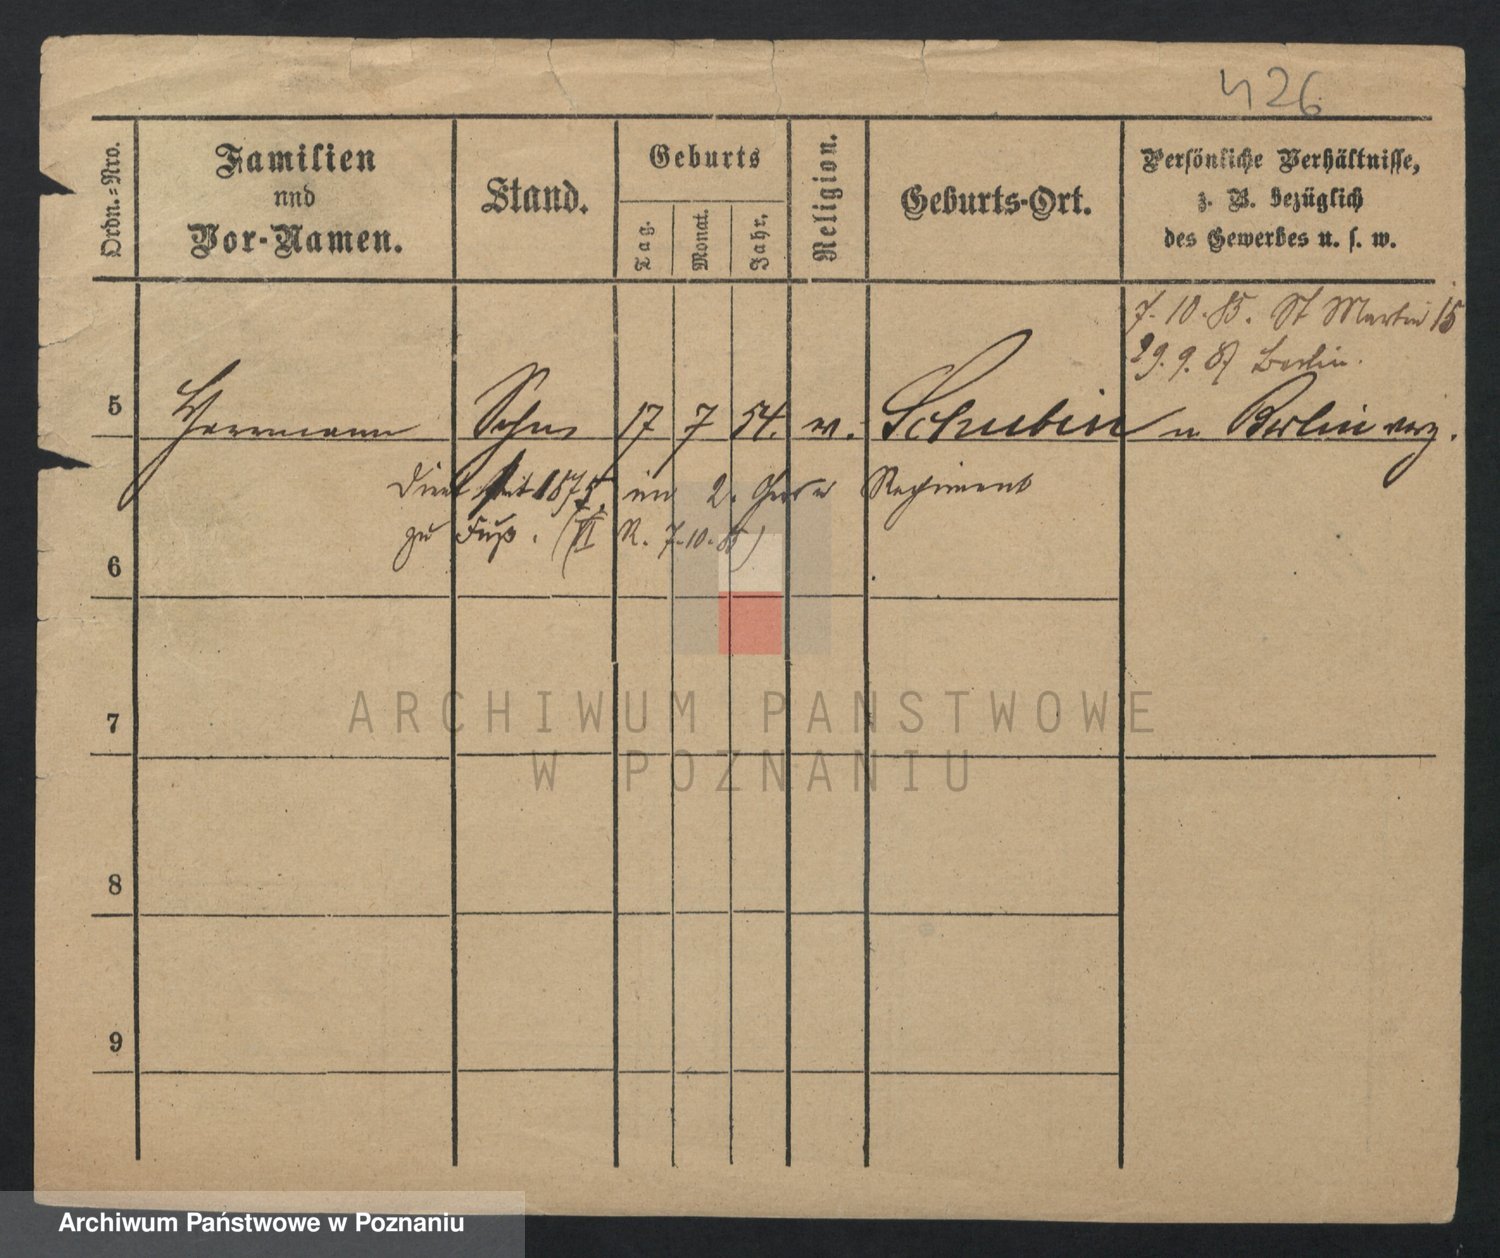 426
Ordn.-Nro.
Familien
und
Vor-Namen.
Stand.
Geburts
Tag.
Monat.
Jahr.
Religion.
Geburts-Ort.
Persönliche Verhältnisse,
z. B. bezüglich
des Gewerbes u. s. w.
7.10.85. St Martin 15
29.9.87 Berlin.
5 Herrmann Sohn 17 7 54. Schubin n. Berlin verz.
Dient seit 1875 im 2. Garde Regiment
zu Fuß. (VI R. 7.10.85)
6
7
8
9
ARCHIWUM PAŃSTWOWE
W POZNANIU
Archiwum Państwowe w Poznaniu